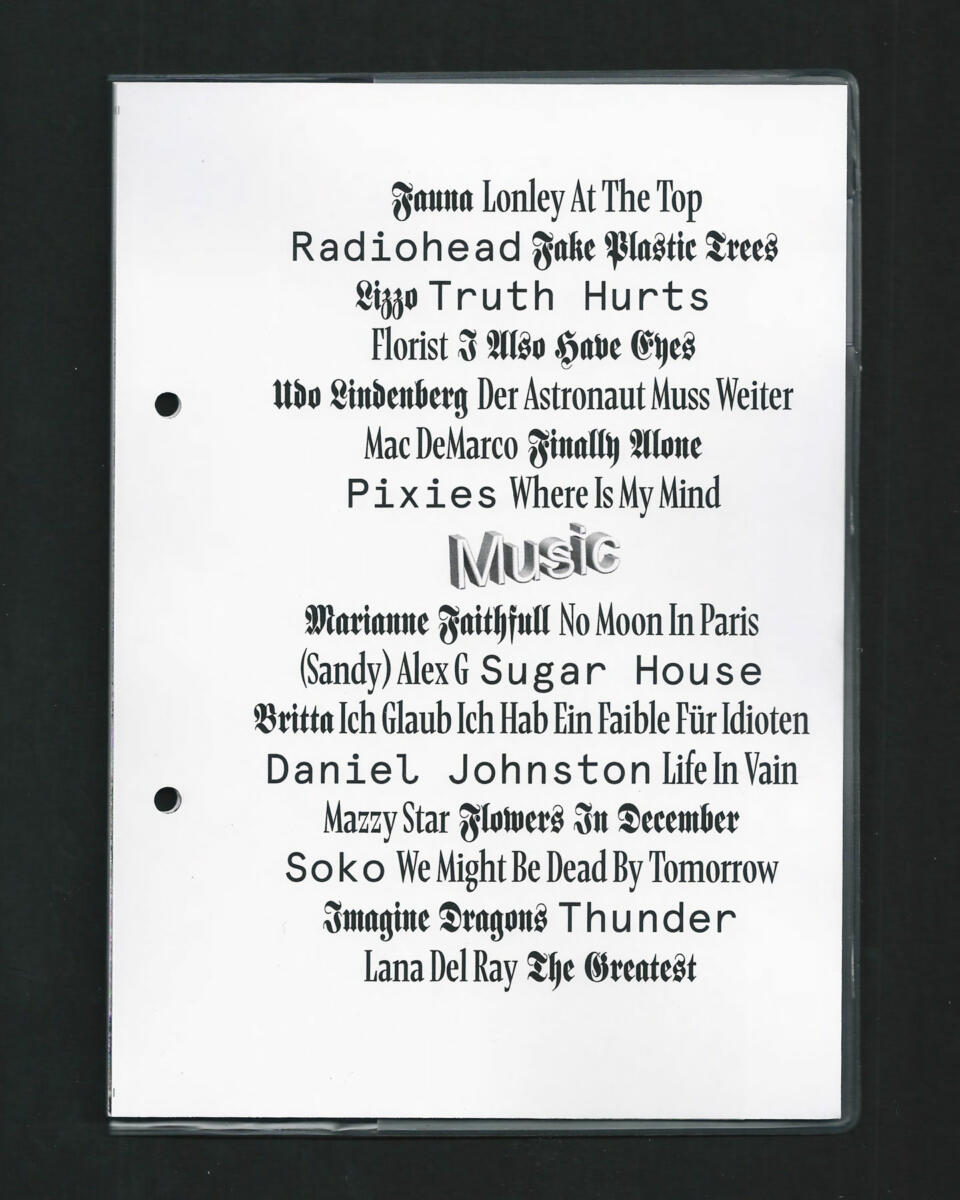 Fauna Lonley At The Top
Radiohead Fake Plastic Trees
Lizzo Truth Hurts
Florist I Also Have Eyes
Udo Lindenberg Der Astronaut Muss Weiter
Mac DeMarco Finally Alone
Pixies Where Is My Mind
Music
Marianne Faithfull No Moon In Paris
(Sandy) Alex G Sugar House
Britta Ich Glaub Ich Hab Ein Faible Für Idioten
Daniel Johnston Life In Vain
Mazzy Star Flowers In December
Soko We Might Be Dead By Tomorrow
Imagine Dragons Thunder
Lana Del Ray The Greatest